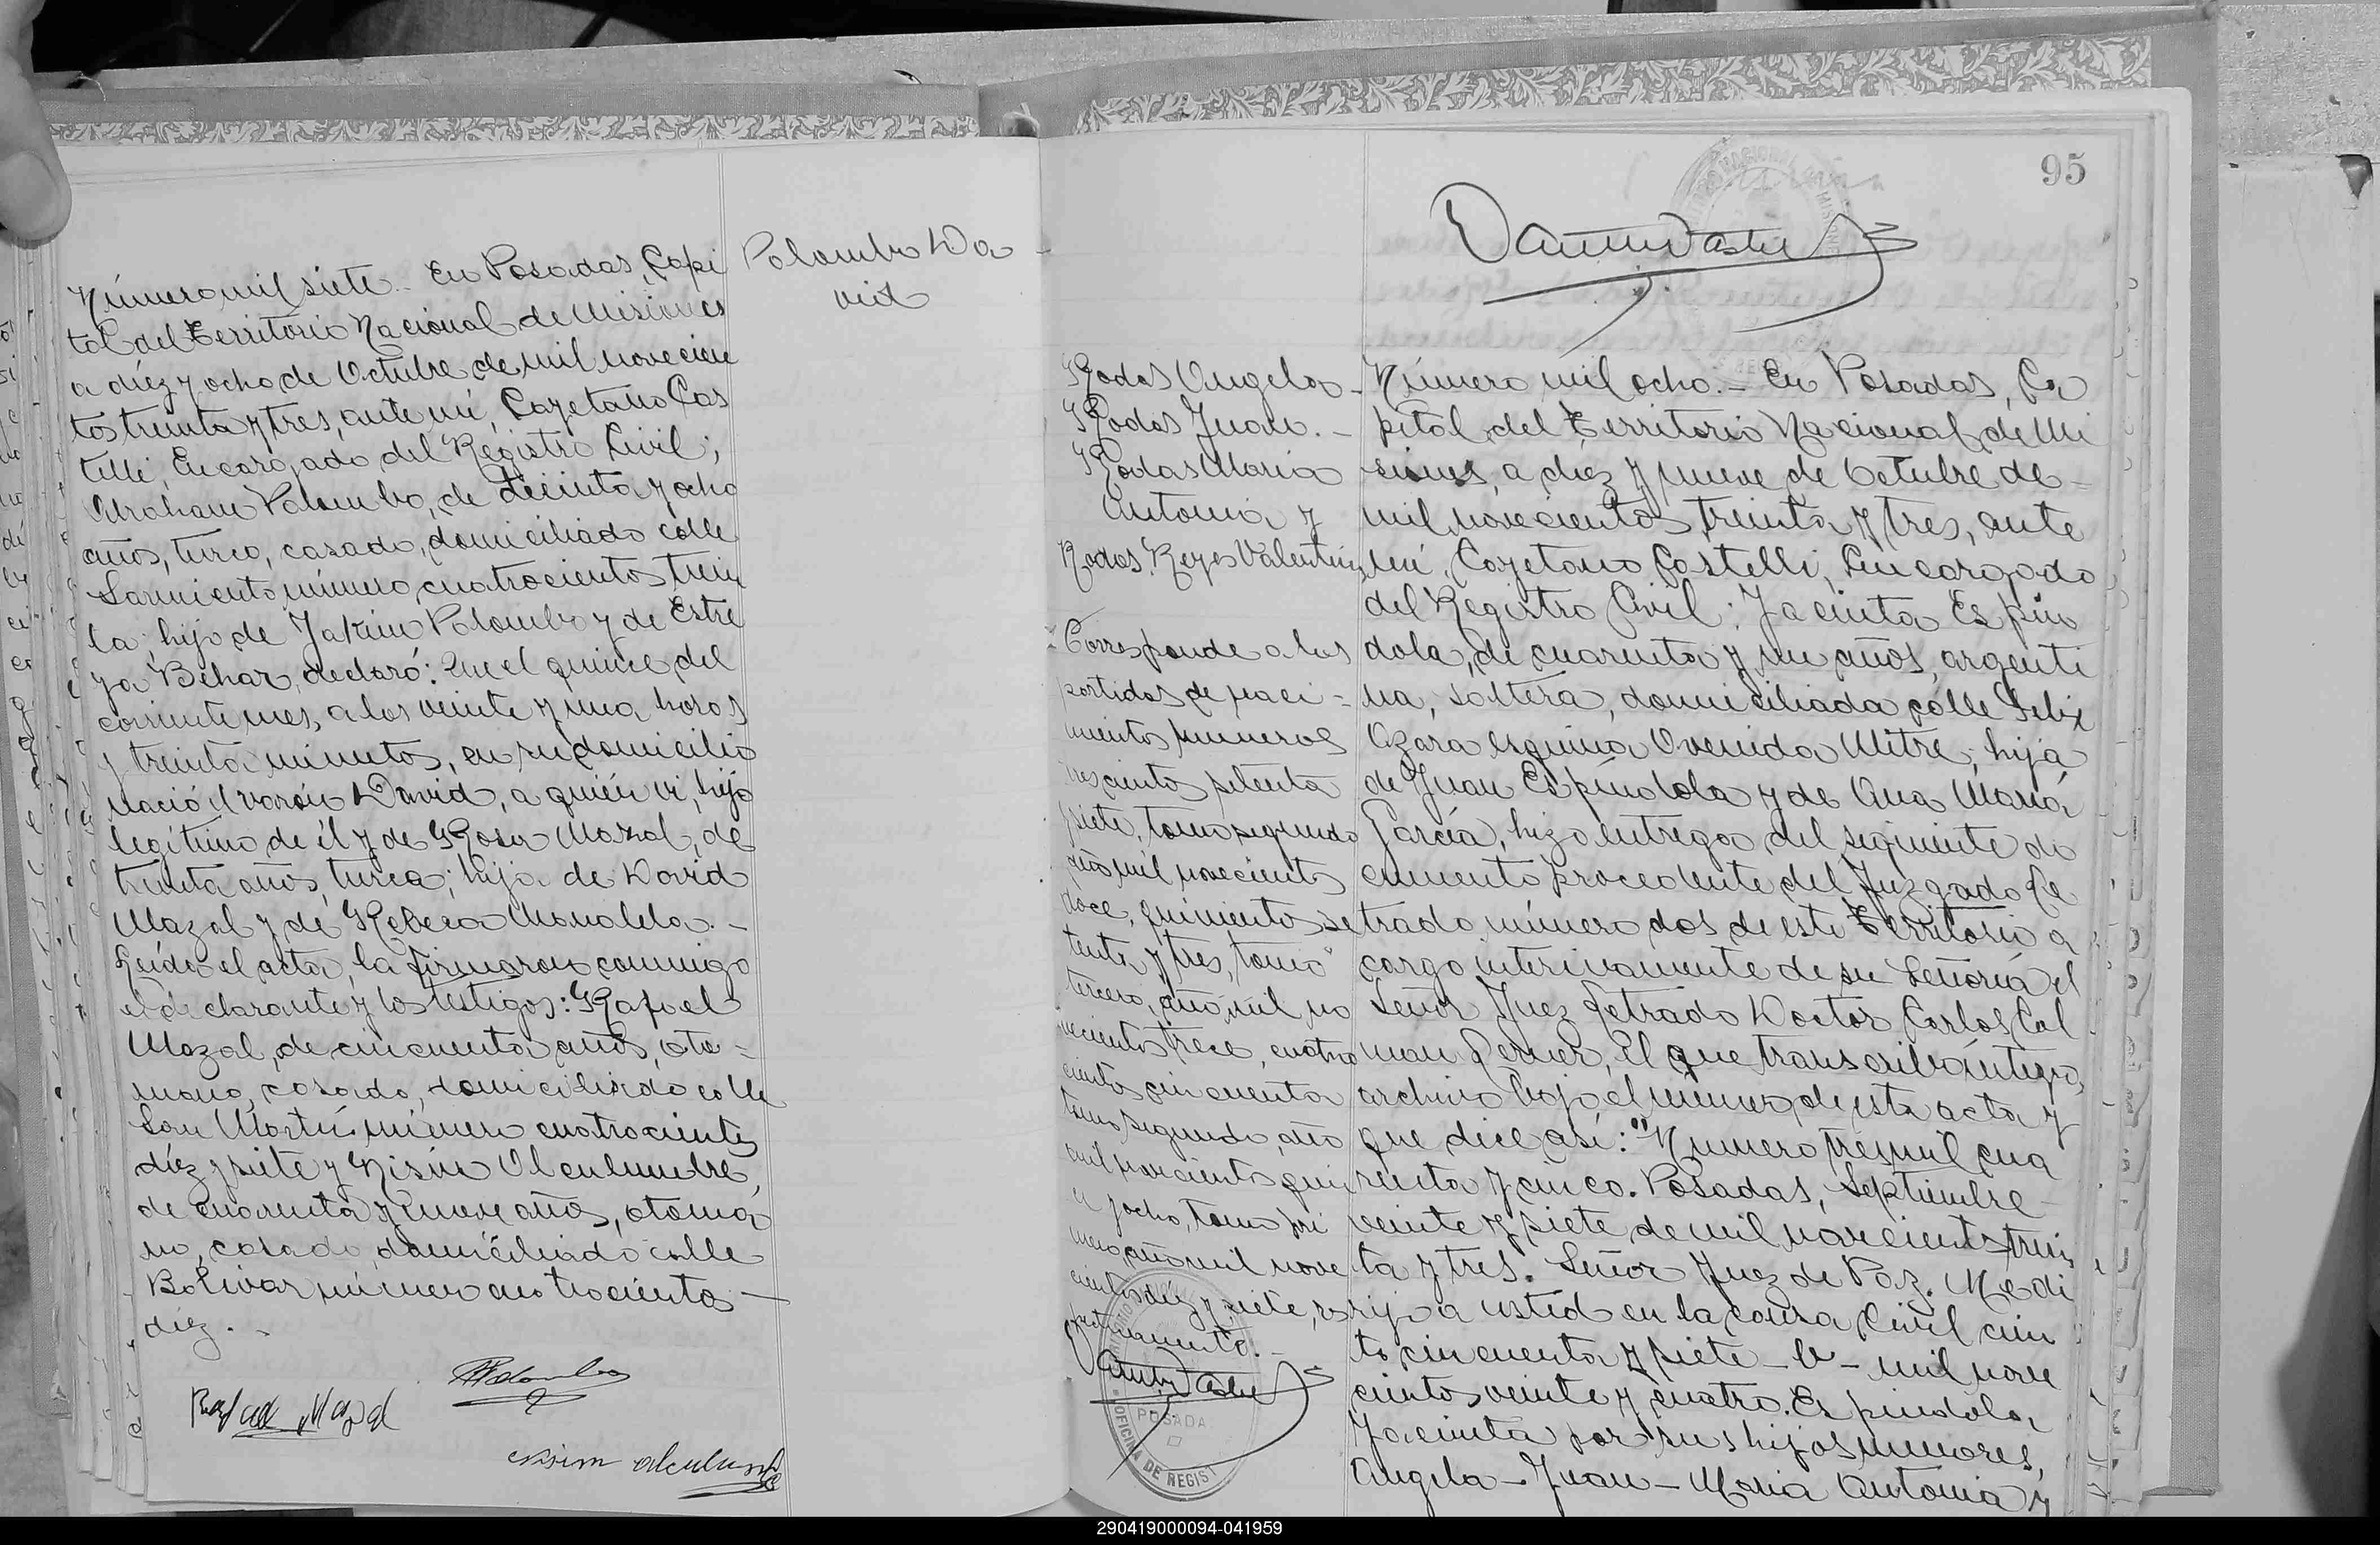 Número mil siete.- En Posadas, Capi
tal del Territorio Nacional de Misiones
a diez y ocho de Octubre de mil novecien
tos treinta y tres, ante mí, Cayetano Cas
telli, Encargado del Registro Civil;
Abraham Palombo, de treinta y ocho
años, turco, casado, domiciliado calle
Sarmiento número cuatrocientos trein
ta; hijo de Palombo y de Estre
ya Behar, declaró: Que el quince del
corriente mes, a las veinte y una horas
y treinta minutos, en su domicilio
nació el varón David, a quién vi, hijo
legítimo de él y de Rosa Mazal, de
treinta años, turca; hija de David
Mazal y de Rebeca
Leída el acta, la firmaron conmigo
el declarante y los testigos: Rafael
Mazal, de cincuenta años, oto=
mano, casado, domiciliado calle
San Martín número cuatrocientos
diez y siete y Nisin
de cuarenta y nueve años, otoma
no, casado, domiciliado calle
Bolivar número cuatrocientos
diez.-
Palombo
Rafael Mazal
Palombo Da-
vid
95
Rodas Angela-
Rodas Juan.-
Rodas María
Antonia y
Rodas Reyes Valentín
Corresponde a las
partidas de naci-
mientos números
trescientos setenta
y siete, tomo segundo
año mil novecientos
doce, quinientos se
tenta y tres, tomo
tercero, año mil no
vecientos trece, cuatro
cientos cincuenta
tomo segundo, año
mil novecientos quin
ce y ocho, tomo pri
mero, año mil nove
cientos diez y siete, res
pectivamente.-
POSADA
OFICINA DE REGIST
Número mil ocho.- En Posadas, Ca
pital del Territorio Nacional de Mi
siones, a diez y nueve de Octubre de-
mil novecientos treinta y tres, ante
mí, Cayetano Castelli, Encargado
del Registro Civil; Jacinta Espín
dola, de cuarenta y un años, argenti
na, soltera, domiciliada calle Felix
Azara esquina Avenida Mitre, hija
de Juan Espíndola y de Ana María
García, hizo entrega del siguiente do
cumento procedente del Juzgado Le
trado número dos de este Territorio a
cargo interinamente de su Señoría el
Señor Juez Letrado Doctor Carlos
el que transcribo íntegro,
archivo bajo el número de esta acta y
que dice así: "Número tres mil cua
renta y cinco. Posadas, Septiembre-
veinte y siete de mil novecientos trein
ta y tres. Señor Juez de Paz. Me di
rijo a usted en la causa Civil cien
to cincuenta y siete - - mil nove
cientos veinte y cuatro. Espíndola,
Jacinta por sus hijos menores,
Angela - Juan - María Antonia y